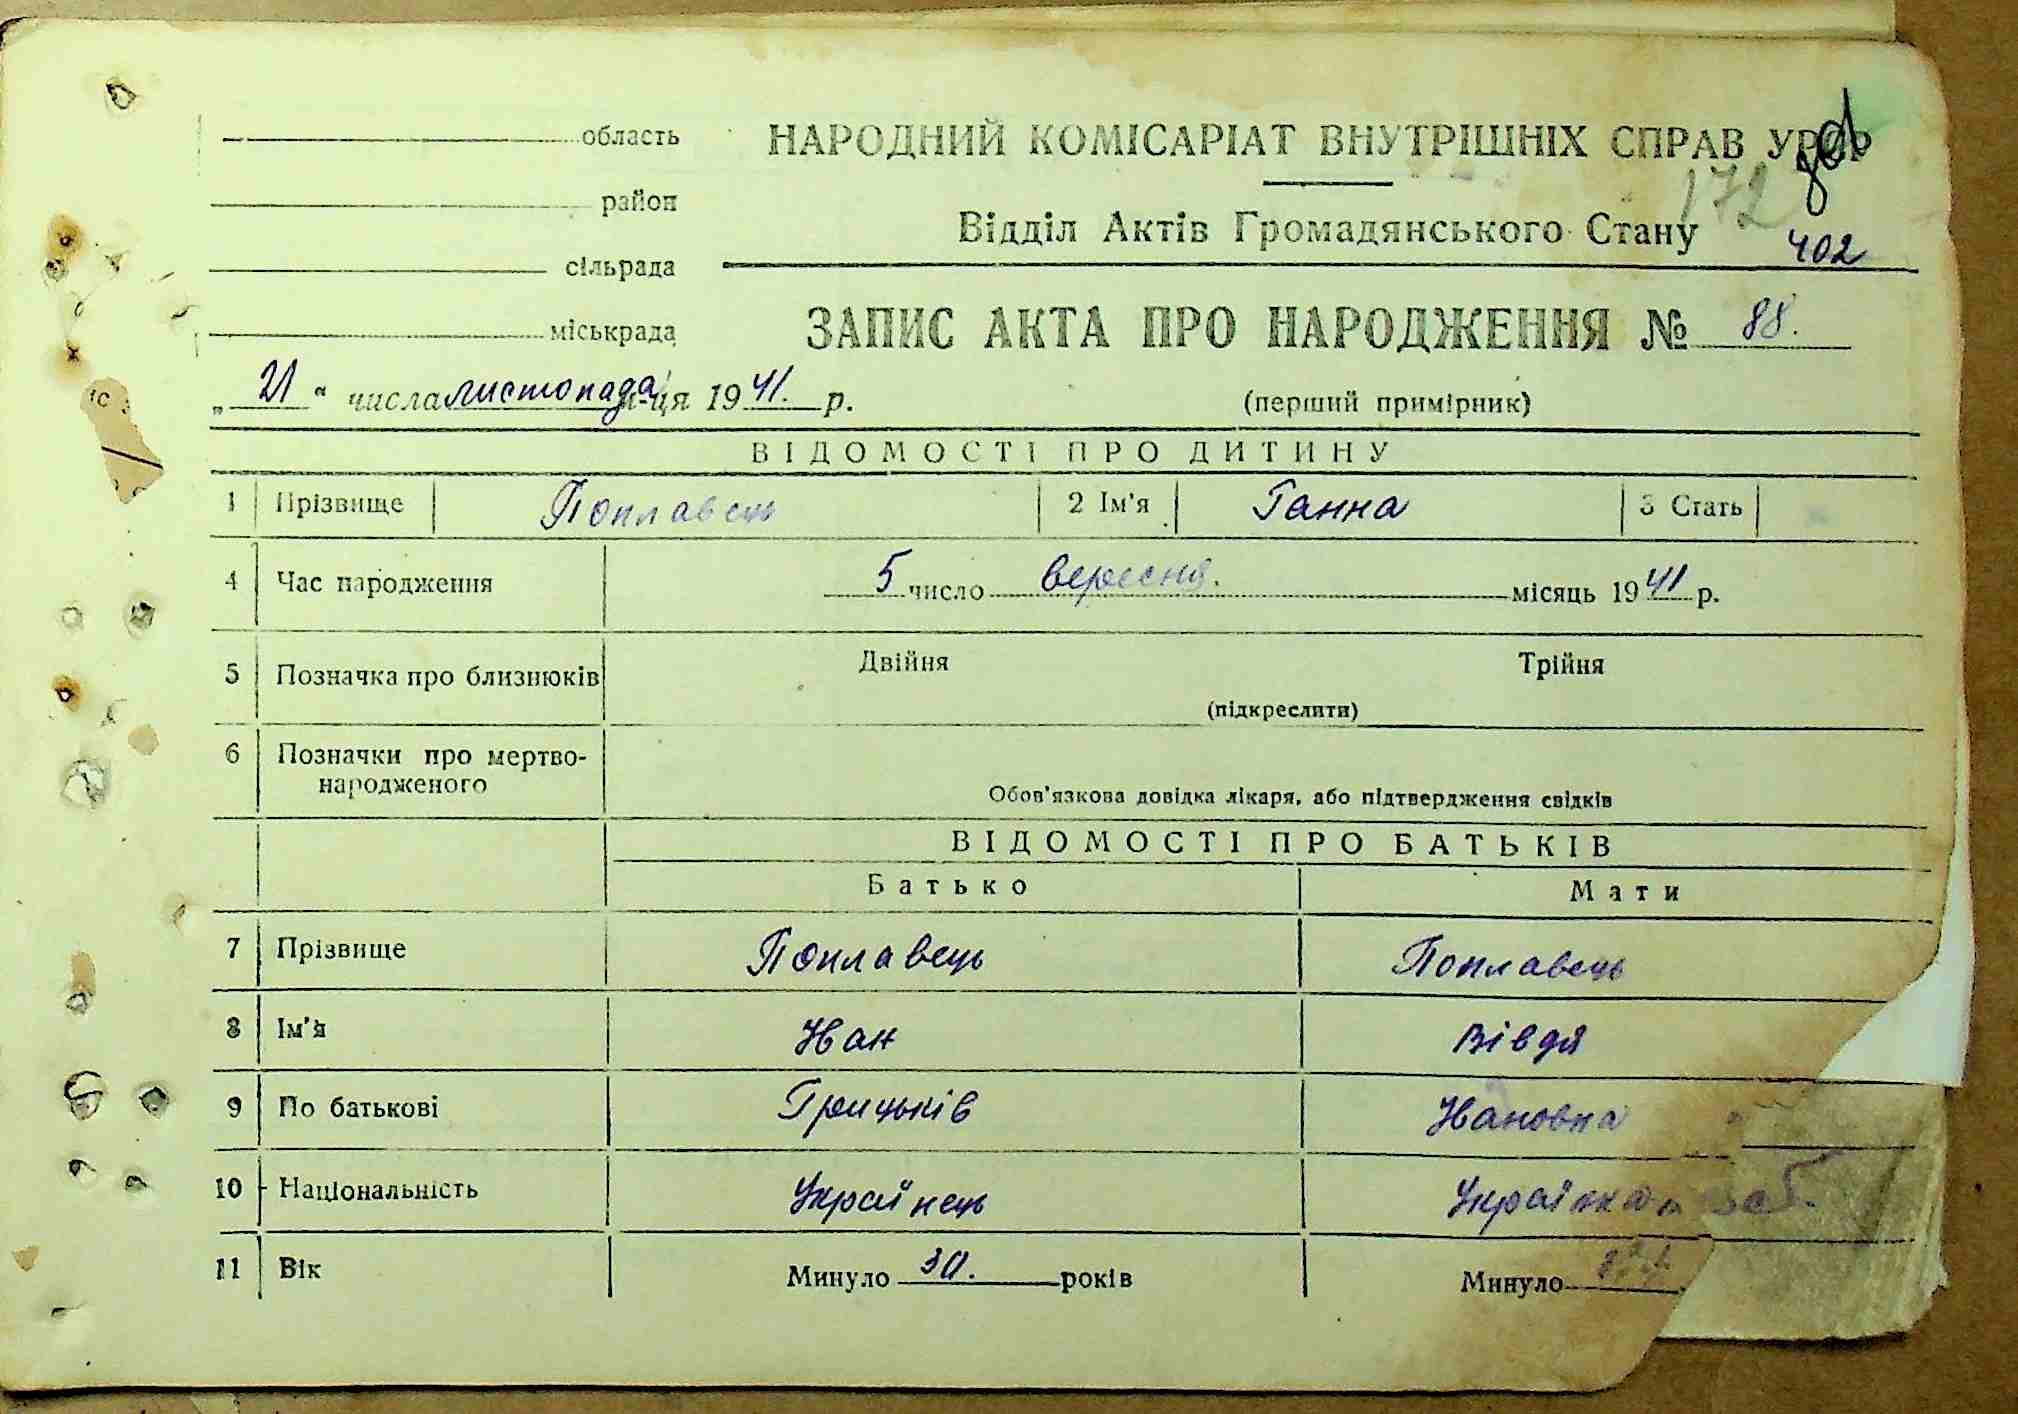 область
НАРОДНИЙ КОМІСАРІАТ ВНУТРІШНІХ СПРАВ УРСР
район
172
Відділ Актів Громадянського Стану
402
сільрада
міськрада
ЗАПИС АКТА ПРО НАРОДЖЕННЯ № 88.
„21“ числа листопада м-ця 1941. р.
(перший примірник)
ВІДОМОСТІ ПРО ДИТИНУ
1 Прізвище Поплавець 2 Ім'я Ганна 3 Стать
4 Час народження 5 число вересня. місяць 1941 р.
5 Позначка про близнюків Двійня Трійня
(підкреслити)
6 Позначки про мертво-
народженого
Обов'язкова довідка лікаря, або підтвердження свідків
ВІДОМОСТІ ПРО БАТЬКІВ
Батько Мати
7 Прізвище Поплавець Поплавець
8 Ім'я Иван Вівдя
9 По батькові Грицьків Ивановна
10 Національність Українець Українка
11 Вік Минуло 30. років Минуло